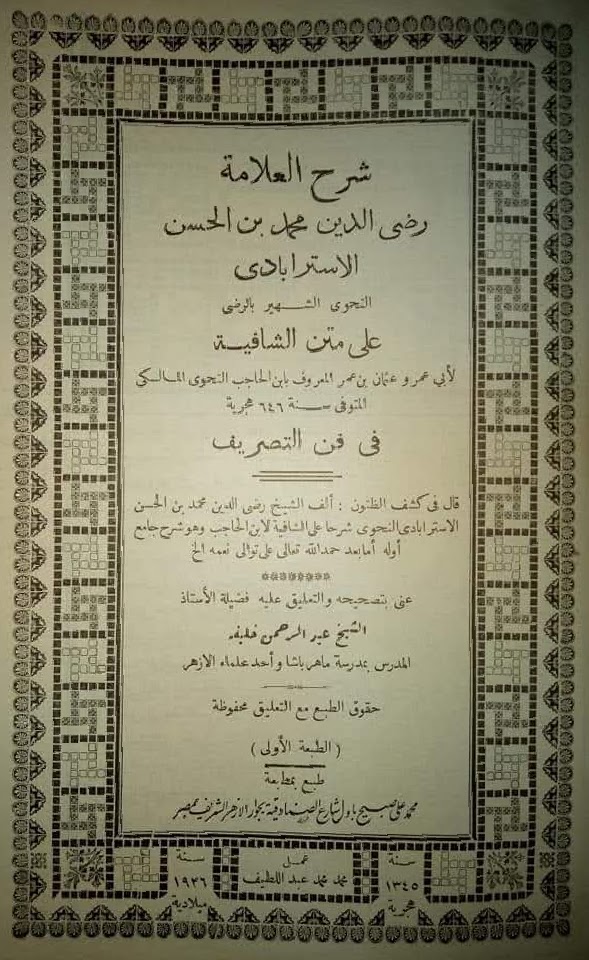 شرح العلامة
رضى الدين محمد بن الحسن
الاسترابادى
النحوى الشهير بالرضى
على متن الشافية
لأبي عمرو عثمان بن عمر المعروف بابن الحاجب النحوى المالكى
المتوفى سنة ٦٤٦ هجرية
فى فن التصريف
قال فى كشف الظنون : ألف الشيخ رضى الدين محمد بن الحسن
الاسترابادى النحوى شرحا على الشافية لابن الحاجب وهو شرح جامع
أوله أما بعد حمد الله تعالى على توالى نعمه الخ
عنى بتصحيحه والتعليق عليه فضيلة الأستاذ
الشيخ عبد الرحمن خليفه
المدرس بمدرسة ماهر باشا وأحد علماء الازهر
حقوق الطبع مع التعليق محفوظة
( الطبعة الأولى )
طبع بمطبعة
محمد على صبيح باول شارع الصنادقية بجوار الازهر الشريف بمصر
سنة
١٣٤٥
هجرية
عمل
محمد محمد عبد اللطيف
سنة
١٩٢٦
ميلادية